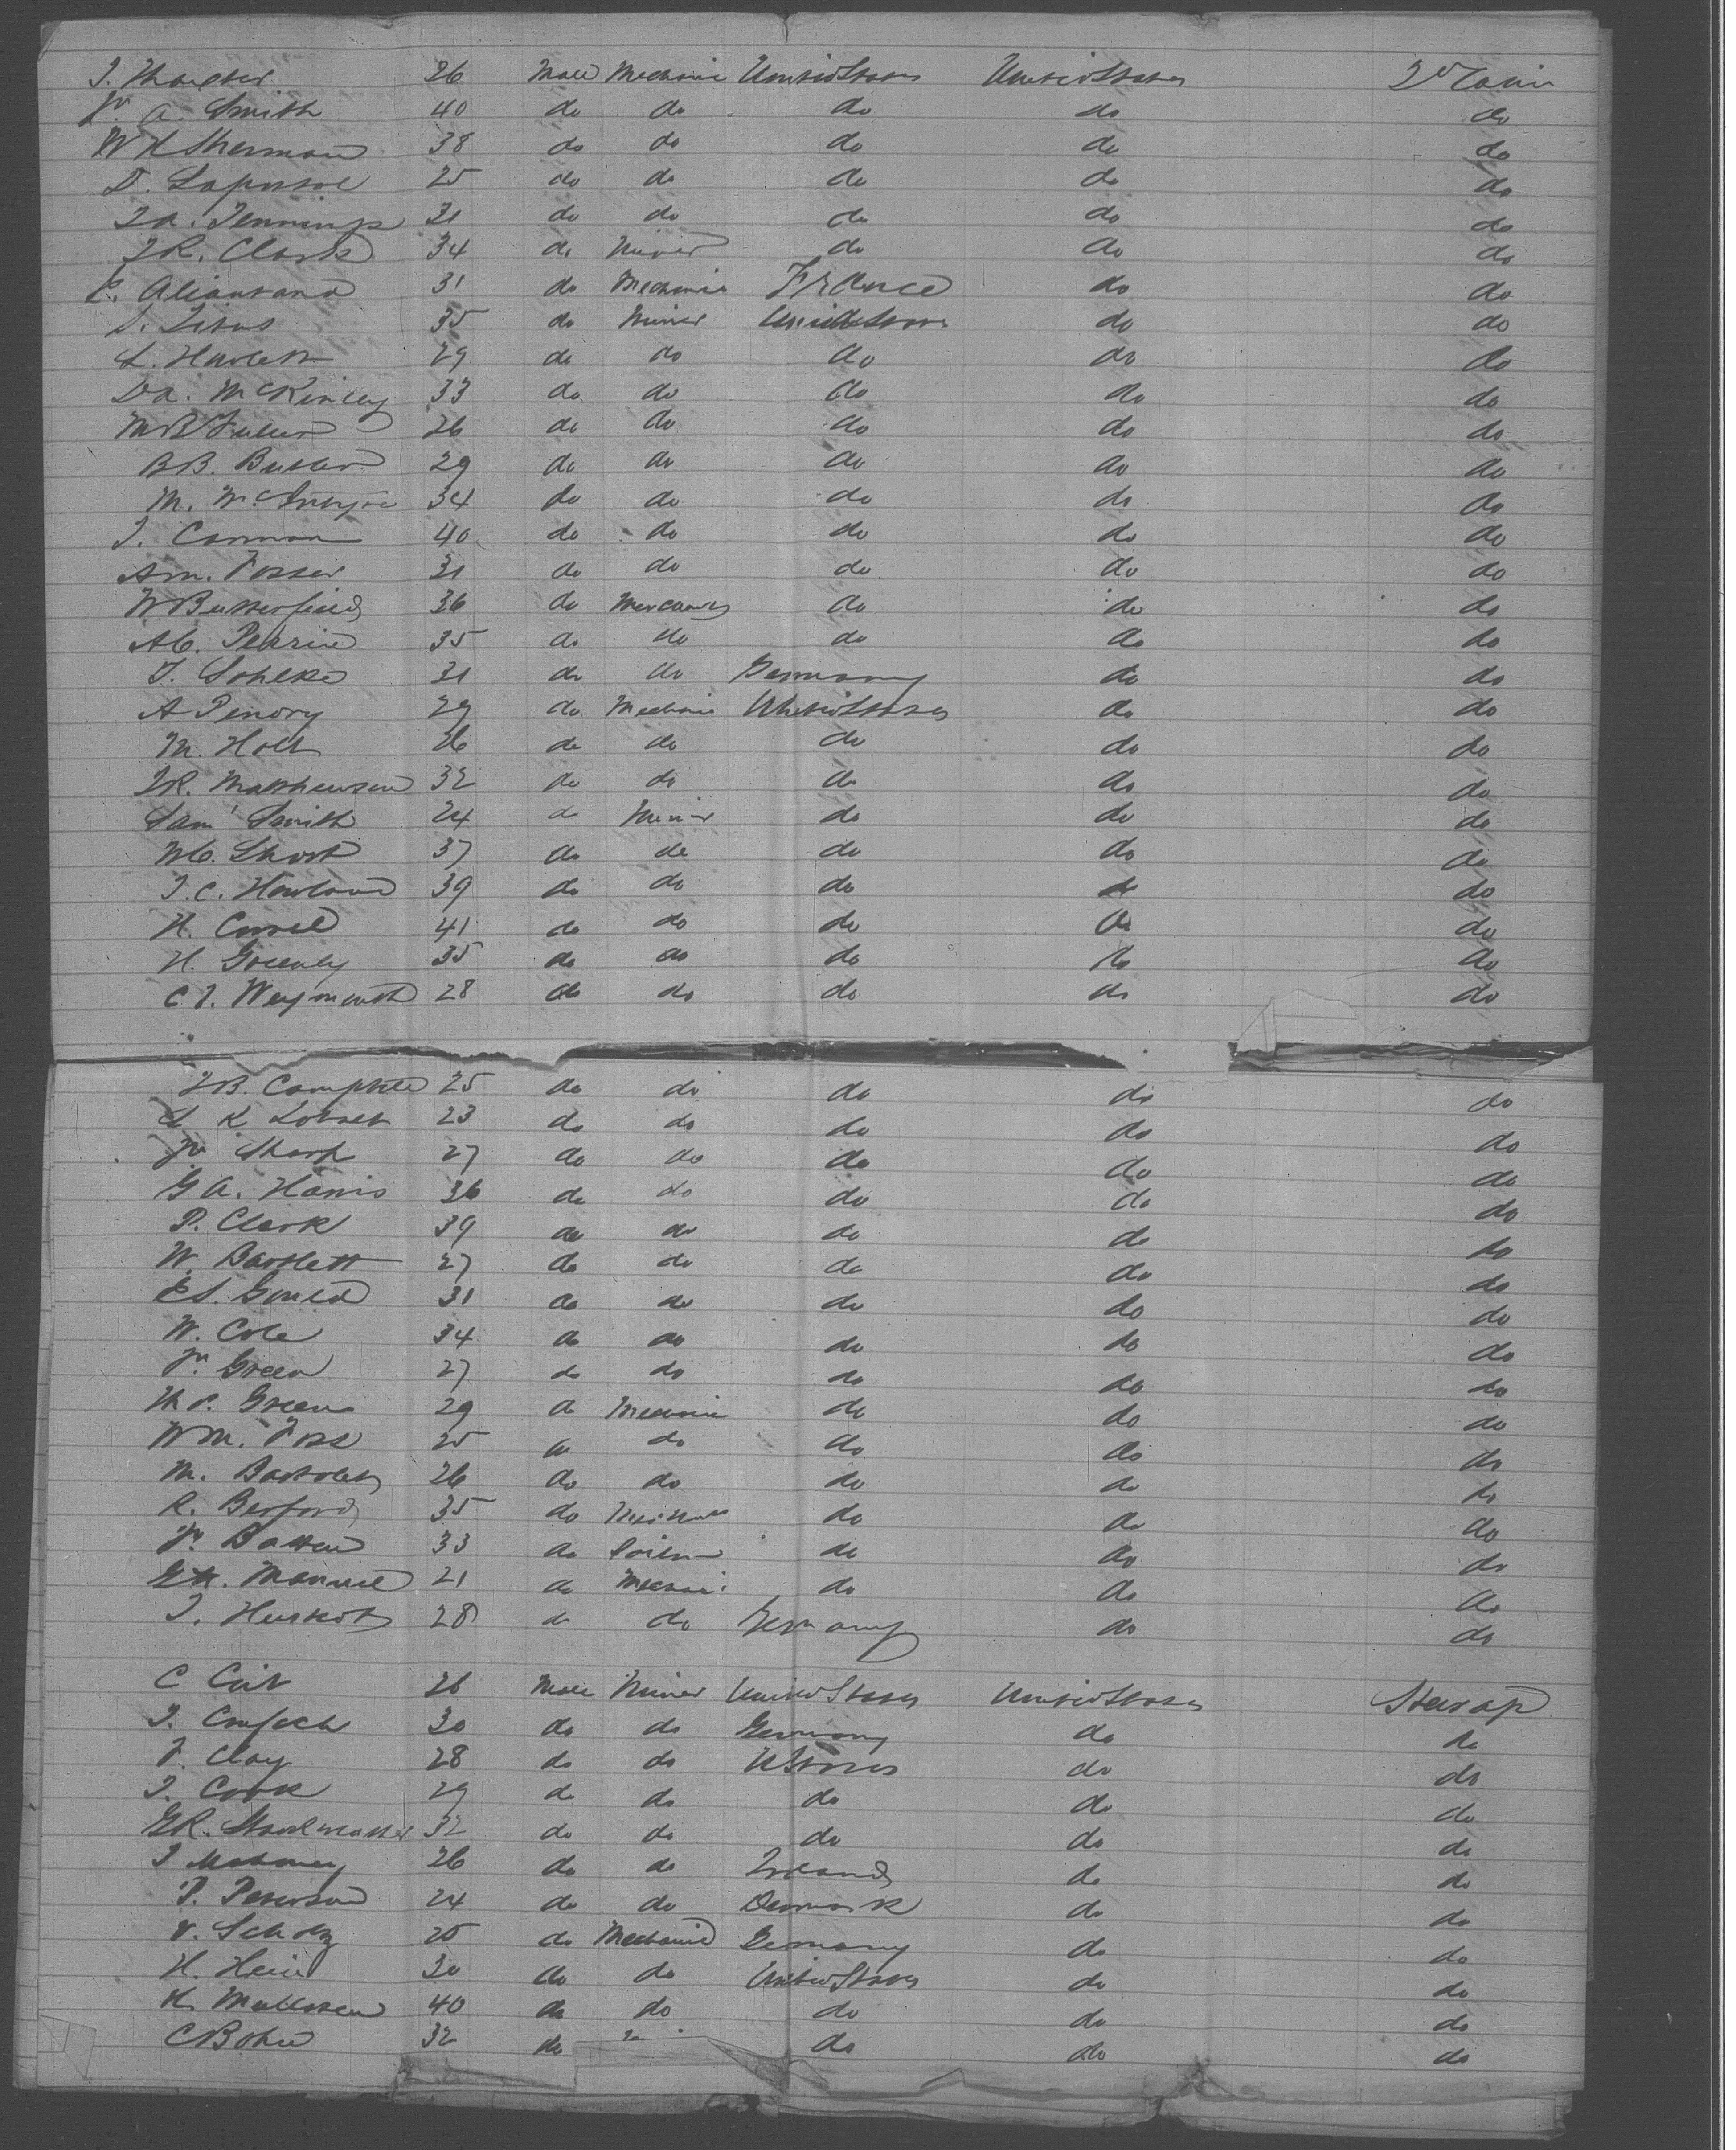 J. Thaxter 26 Male Mechanic United States United States 2d Cabin
Jn A. Smith 40 do do do do do
W H Sherman 38 do do do do do
D. 25 do do do do do
J A. Jennings 31 do do do do do
J R. Clark 34 do Miner do do do
31 do Mechanic France do do
S. Titus 35 do Miner United States do do
L. Hewlett 29 do do do do do
D A. McKinley 33 do do do do do
M B Fuller 26 do do do do do
B B. Butler 29 do do do do do
M. 34 do do do do do
J. Carman 40 do do do do do
A M. 31 do do do do do
W Butterfield 36 do do do do
A C. Perrine 35 do do do do do
J. Sohlke 31 do do Germany do do
A Penory 29 do Mechanic United States do do
M. Holt 26 do do do do do
J R. Matthewson 32 do do do do do
Saml Smith 24 do Miner do do do
W C. Short 37 do do do do do
J. C. Howland 39 do do do do do
H. 41 do do do do do
H. Greenly 35 do do do do do
C J. Weymouth 28 do do do do do
J B. Campbell 25 do do do do do
23 do do do do do
Jn Sharp 27 do do do do do
G A. Harris 36 do do do do do
P. Clark 39 do do do do do
W. Bartlett 27 do do do do do
E S. Gould 31 do do do do do
W. Cole 34 do do do do do
Jn Green 27 do do do do do
Green 29 do Mechanic do do do
Wm. Foss 25 do do do do do
M. 26 do do do do do
R. Berford 35 do do do do
Jn 33 do do do do
Manuel 21 do Mechanic do do do
J. 28 do do Germany do do
C 26 Male Miner United States United States Steerage
J. 30 do do Germany do do
J. Clay 28 do do U States do do
J. Cook 29 do do do do do
G R. Starkweather 32 do do do do do
J Mahoney 26 do do Ireland do do
P. Peterson 24 do do Denmark do do
V. Scholz 25 do Mechanic Germany do do
H. Hein 30 do do United States do do
40 do do do do do
C 32 do do do do